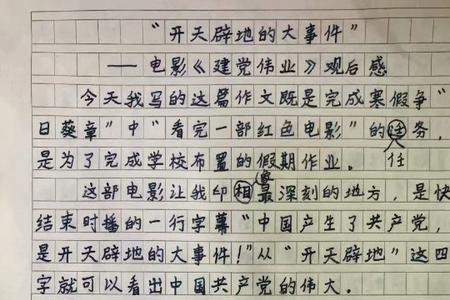 “开天辟地的大事件”
——电影《建党伟业》观后感
今天我写的这篇作文既是完成寒假争“
日葵章”中“看完一部红色电影”的务,
任
是为了完成学校布置的假期作业。
象
这部电影让我印相最深刻的地方,是快
结束时播的一行字幕“中国产生了共产党,
是开天辟地的大事件!”从“开天辟地”这四
字就可以看出中国共产党的伟大。